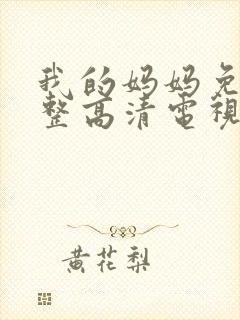 我的妈妈免
整高清電視
黄花梨